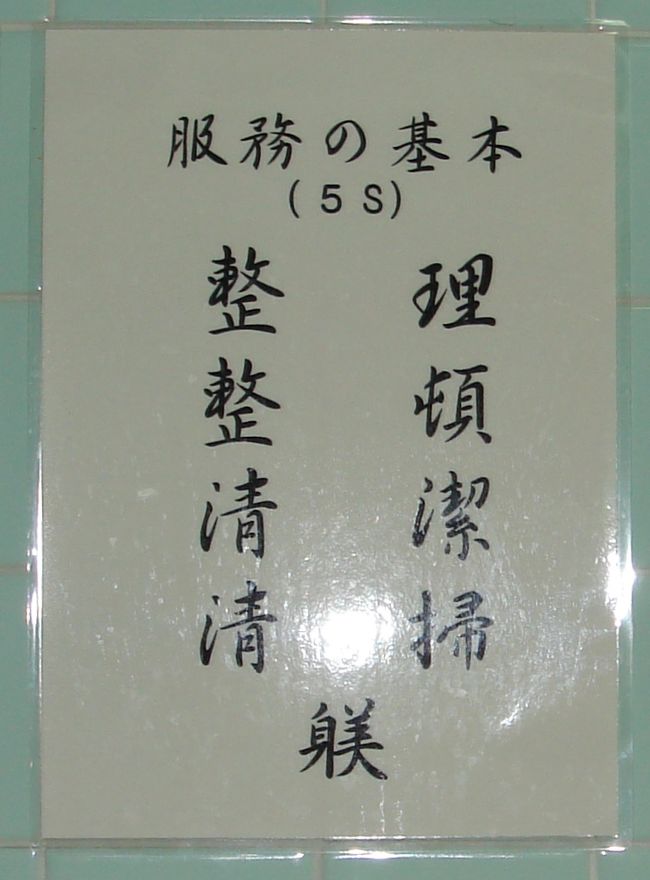 服務の基本
(5S)
整理
整頓
清潔
清掃
躾